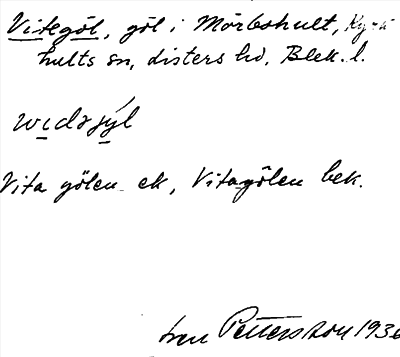 Vitegöl, göl i Mörbshult, Kyrk
hults sn, Listers hd, Blek. l.
widəjýl
Vita gölen ek, Vitagölen bek.
Pettersson 1936